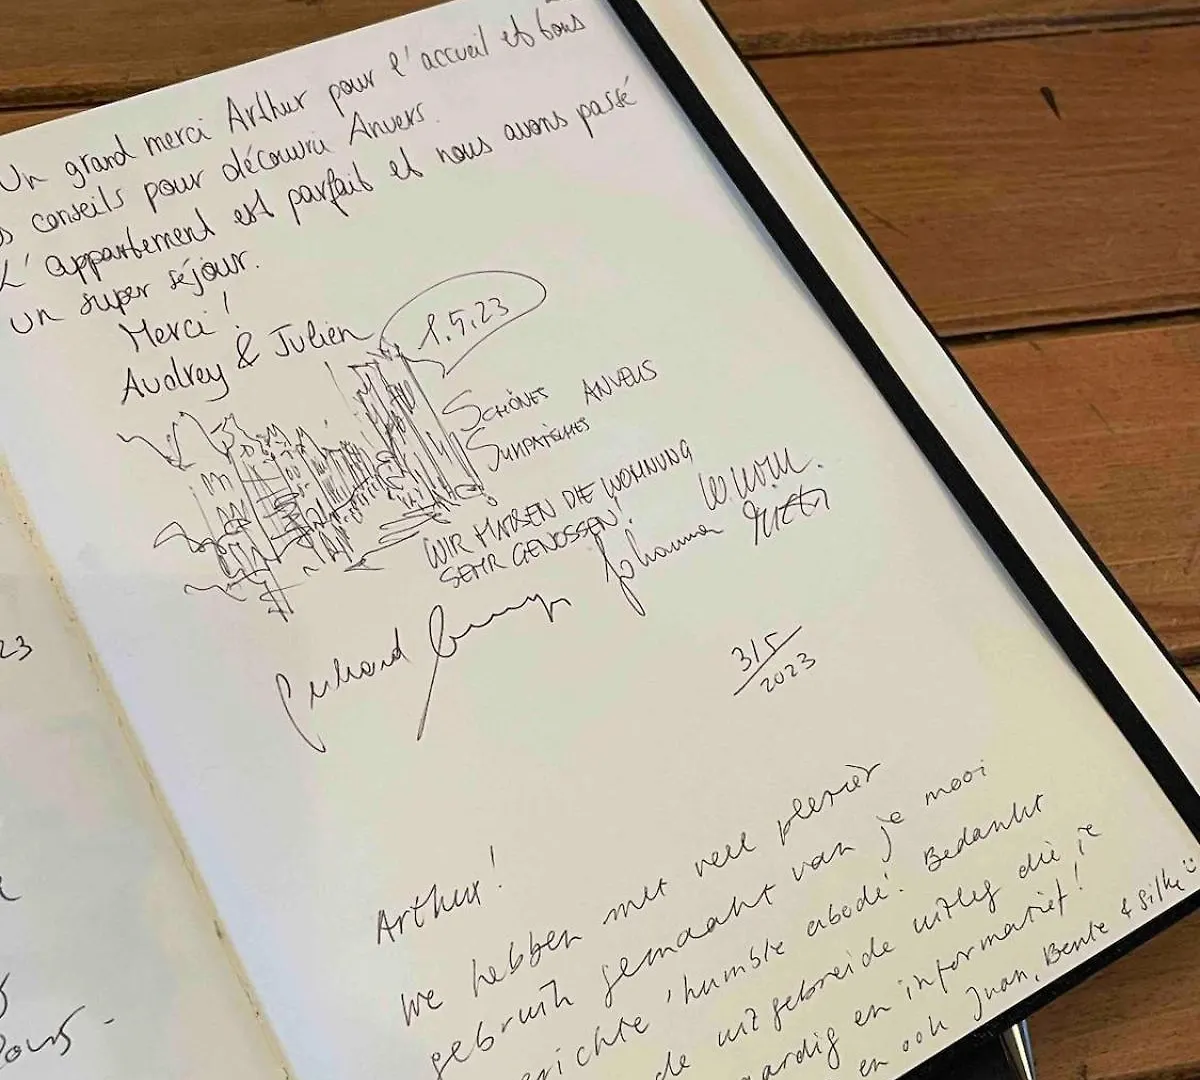 Un grand merci Arthur pour l'accueil et bons
conseils pour découvrir Anvers.
L'appartement est parfait et nous avons passé
un super séjour.
Merci!
Audrey & Julien
1.5.23
SCHÖNES ANVERS
SYMPATISCHES
WIR HABEN DIE WOHNUNG
SEHR GENOSSEN!
Johanna
3/5
2023
23
Arthur!
We hebben met veel plezier
gebruik gemaakt van je mooi
'humble abode'. Bedankt
de uitgebreide uitleg die je
en informatief!
en ook Juan, Bente & Silke